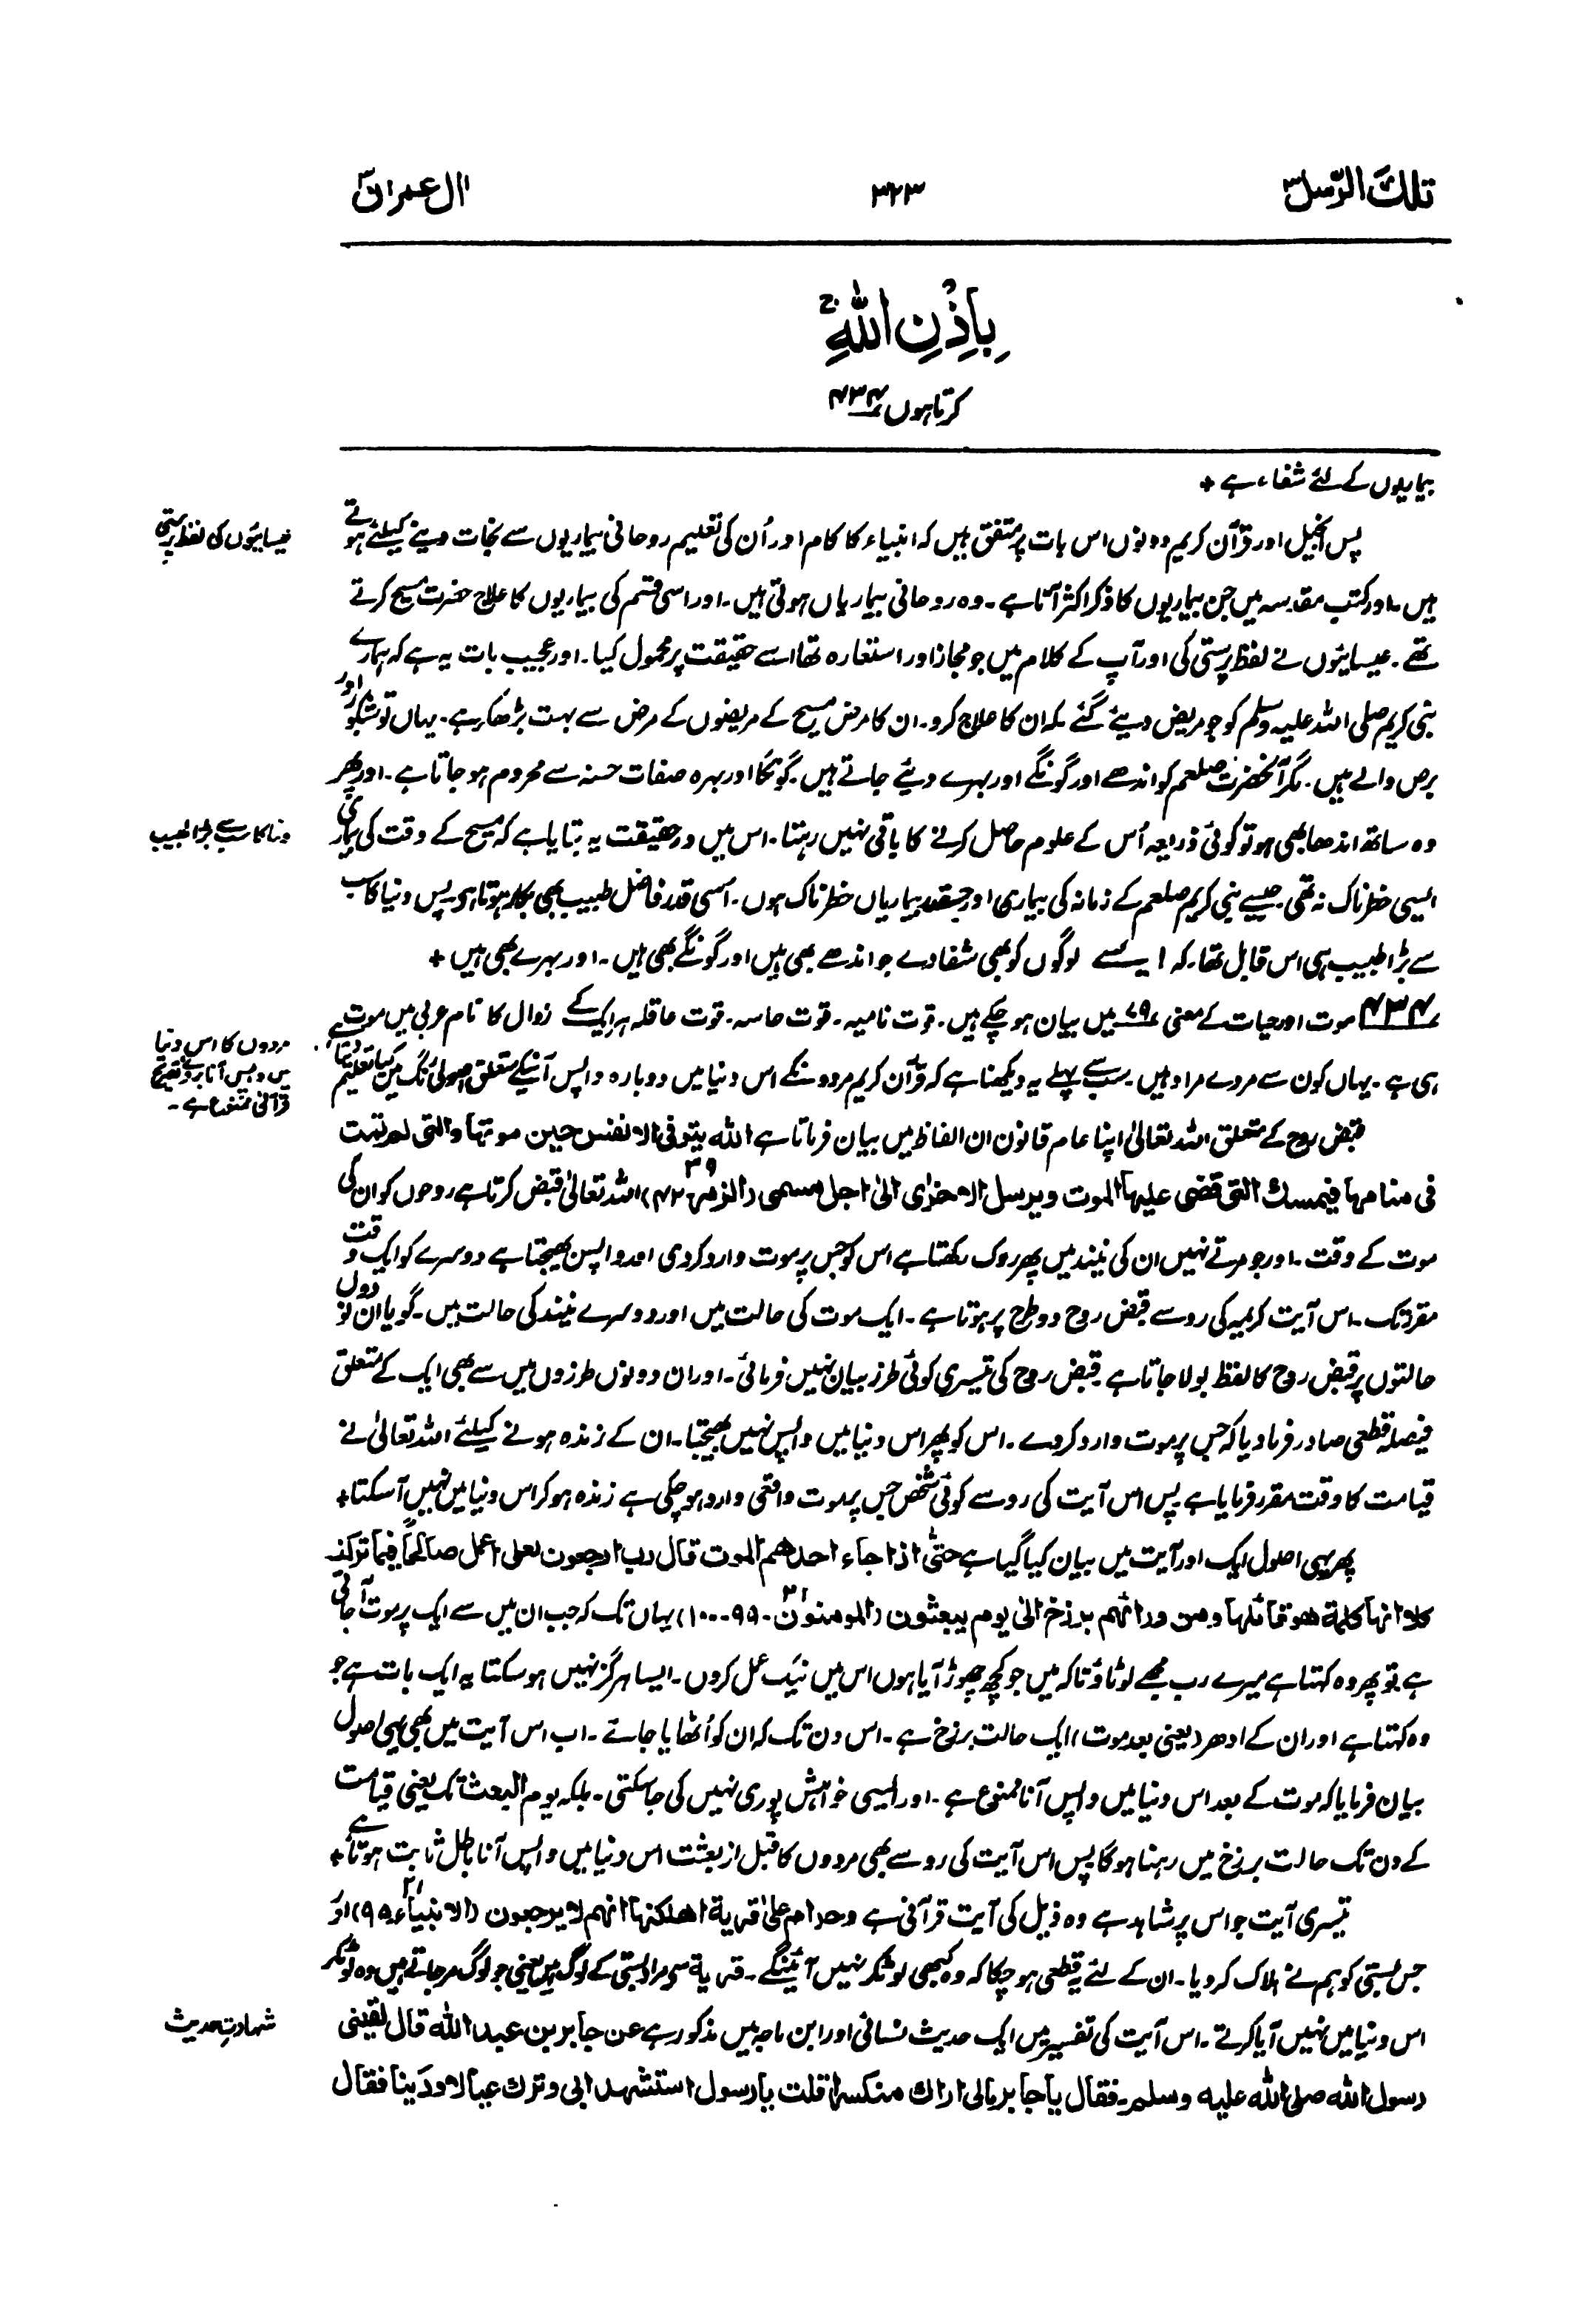 تلك الرّسل ٣
٣٢٣
اٰل عمران ٣
بِاِذْنِ اللّٰهِ ۚ
کرتا ہوں ۴۳۴
بیماریوں کے لئے شفاء ہے +
پس انجیل اور قرآن کریم دونوں اس بات پر متفق ہیں کہ انبیاء کا کام اور اُن کی تعلیم روحانی بیماریوں سے نجات دینے کیلئے ہوتے
عیسائیوں کی لفظ پرستی
ہیں ۔ اور کتب مقدسہ میں جن بیماریوں کا ذکر اکثر آتا ہے ۔ وہ روحانی بیماریاں ہوتی ہیں ۔ اور اسی قسم کی بیماریوں کا علاج حضرت مسیح کرتے
تھے ۔ عیسائیوں نے لفظ پرستی کی اور آپ کے کلام میں جو مجاز اور استعارہ تھا اسے حقیقت پر محمول کیا ۔ اور عجیب بات یہ ہے کہ ہمارے
نبی کریم صلی اللہ علیہ وسلم کو جو مریض دیئے گئے کہ ان کا علاج کرو ۔ ان کا مرض مسیح کے مریضوں کے مرض سے بہت بڑھکر ہے ۔ یہاں تو شبکور اور
برص والے ہیں ۔ مگر آنحضرت صلعم کو اندھے اور گونگے اور بہرے دیئے جاتے ہیں ۔ گونگا اور بہرہ صفات حسنہ سے محروم ہو جاتا ہے ۔ اور پھر
وہ ساتھ اندھا بھی ہو تو کوئی ذریعہ اُس کے علوم حاصل کرنے کا باقی نہیں رہتا ۔ اس میں درحقیقت یہ بتایا ہے کہ مسیح کے وقت کی بیماری
دنیا کا سب سے بڑا طبیب
ایسی خطرناک نہ تھی جیسے نبی کریم صلعم کے زمانہ کی بیماری اور جسقدر بیماریاں خطرناک ہوں ۔ اسی قدر فاضل طبیب بھی بکار ہوتا ہی پس دنیا کا سب
سے بڑا طبیب ہی اس قابل تھا ۔ کہ ایسے لوگوں کو بھی شفا دے جو اندھے بھی ہیں اور گونگے بھی ہیں ۔ اور بہرے بھی ہیں +
۴۳۴ موت اور حیات کے معنی ۷۹ میں بیان ہو چکے ہیں ۔ قوت نامیہ ۔ قوت حاسہ ۔ قوت عاقلہ ہر ایک کے زوال کا نام عربی میں موت
ہی ہے ۔ یہاں کون سے مردے مراد ہیں ۔ سب سے پہلے یہ دیکھنا ہے کہ قرآن کریم مردونکے اس دنیا میں دوبارہ واپس آنیکے متعلق اصولی رنگ میں کیا تعلیم دیتا ہے ۔
مردوں کا اس دنیا
میں واپس آنا بروئے تصریح
قرآنی ممنوع ہے ۔
قبض روح کے متعلق اللہ تعالیٰ اپنا عام قانون ان الفاظ میں بیان فرماتا ہے اللہ یتوفی الانفس حین موتھا والتی لم تمت
فی منامھا فیمسك التی قضی علیھا الموت ویرسل الاخرٰی الیٰ اجل مسمی (الزمر ۳۹ ۔ ۴۲) اللہ تعالیٰ قبض کرتا ہے روحوں کو ان کی
موت کے وقت ۔ اور جو مرتے نہیں ان کی نیند میں پھر روک رکھتا ہے اس کو جس پر موت وارد کردی اور واپس بھیجتا ہے دوسرے کو ایک وقت
مقرر تک ۔ اس آیت کریمہ کی رو سے قبض روح دو طرح پر ہوتا ہے ۔ ایک موت کی حالت میں اور دوسرے نیند کی حالت میں ۔ گویا ان دونوں
حالتوں پر قبض روح کا لفظ بولا جاتا ہے قبض روح کی تیسری کوئی طرز بیان نہیں فرمائی ۔ اور ان دونوں طرزوں میں سے بھی ایک کے متعلق
فیصلہ قطعی صادر فرما دیا کہ جس پر موت وارد کردے ۔ اس کو پھر اس دنیا میں واپس نہیں بھیجتا ۔ ان کے زندہ ہونے کیلئے اللہ تعالیٰ نے
قیامت کا وقت مقرر فرمایا ہے پس اس آیت کی رو سے کوئی شخص جس پر موت واقعی وارد ہو چکی ہے زندہ ہو کر اس دنیا میں نہیں آسکتا +
پھر یہی اصول ایک اور آیت میں بیان کیا گیا ہے حتّٰی اذا جاء احدھم الموت قال رب ارجعون لعلی اعمل صالحاً فیما ترکت
کلا انھا کلمة ھو قائلھا ومن ورائھم برزخ الیٰ یوم یبعثون (المومنون ۲۳ ۔ ۹۹ ۔ ۱۰۰) یہاں تک کہ جب ان میں سے ایک پر موت آجاتی
ہے تو پھر وہ کہتا ہے میرے رب مجھے لوٹاؤ تاکہ میں جو کچھ چھوڑ آیا ہوں اس میں نیک عمل کروں ۔ ایسا ہرگز نہیں ہو سکتا یہ ایک بات ہے جو
وہ کہتا ہے اور ان کے ادھر (یعنی بعد موت) ایک حالت برزخ ہے ۔ اس دن تک کہ ان کو اُٹھایا جائے ۔ اب اس آیت میں بھی یہی اصول
بیان فرمایا کہ موت کے بعد اس دنیا میں واپس آنا ممنوع ہے ۔ اور ایسی خواہش پوری نہیں کی جاسکتی ۔ بلکہ یوم البعث تک یعنی قیامت
کے دن تک حالت برزخ میں رہنا ہوگا پس اس آیت کی رو سے بھی مردوں کا قبل از بعثت اس دنیا میں واپس آنا باطل ثابت ہوتا ہے +
تیسری آیت جو اس پر شاہد ہے وہ ذیل کی آیت قرآنی ہے وحرام علیٰ قریة اھلکنھا انھم لا یرجعون (الانبیاء ۲۱ ۔ ۹۵) اور
جس بستی کو ہم نے ہلاک کر دیا ۔ ان کے لئے یہ قطعی ہو چکا کہ وہ کبھی لوٹکر نہیں آئینگے ۔ قریة سے مراد بستی کے لوگ ہیں یعنی جو لوگ مر جاتے ہیں وہ لوٹکر
اس دنیا میں نہیں آیا کرتے ۔ اس آیت کی تفسیر میں ایک حدیث نسائی اور ابن ماجہ میں مذکور ہے عن جابر بن عبد اللہ قال لقینی
شہادت حدیث
رسول اللہ صلی اللہ علیہ وسلم ۔ فقال یا جابر مالی اراك منکسرا قلت یا رسول استشھد ابی وترك عیالا ودینا فقال